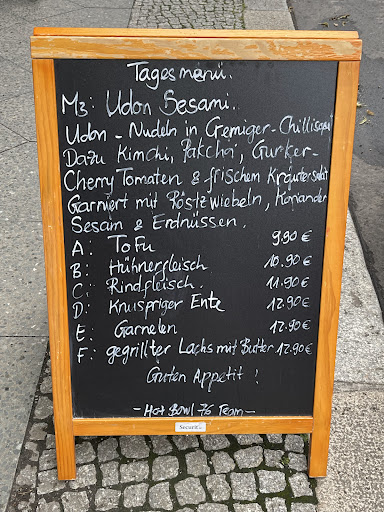 Tagesmenü.
M3: Udon Sesami.
Udon - Nudeln in Cremiger - Chillisoße
Dazu Kimchi, Pakchoi, Gurken-
Cherry Tomaten & frischem Kräutersalat
Garniert mit Röstzwiebeln, Koriander
Sesam & Erdnüssen.
A: Tofu 9.90 €
B: Hühnerfleisch 10.90 €
C: Rindfleisch. 11.90 €
D: Knuspriger Ente 12.90 €
E: Garnelen 12.90 €
F: gegrillter Lachs mit Butter 12.90 €
Guten Appetit !
- Hot Bowl 76 Team -
Securit